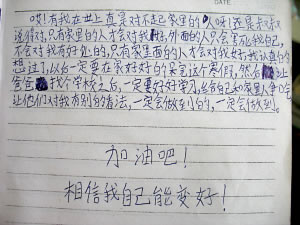 哎!有我在世上真是对不起家里的人呀!还是哥对我
说得对,只有家里的人才会对我好,外面的人只会害死我自己,
不会对我有好处的,只有家里面的人才会对我好,我认真的
想过了,以后一定要在家好好的呆过这个寒假,然后让
爸爸找个学校之后,一定要好好学习,给自己和家里人争口气
让他们对我有别的看法,一定会做到的,一定会做到。
加油吧!
相信我自己能变好!